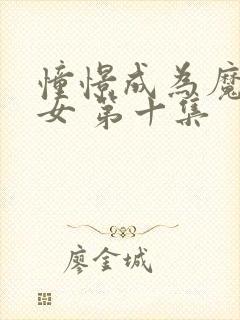 憧憬成為魔
女 第十集
廖金城